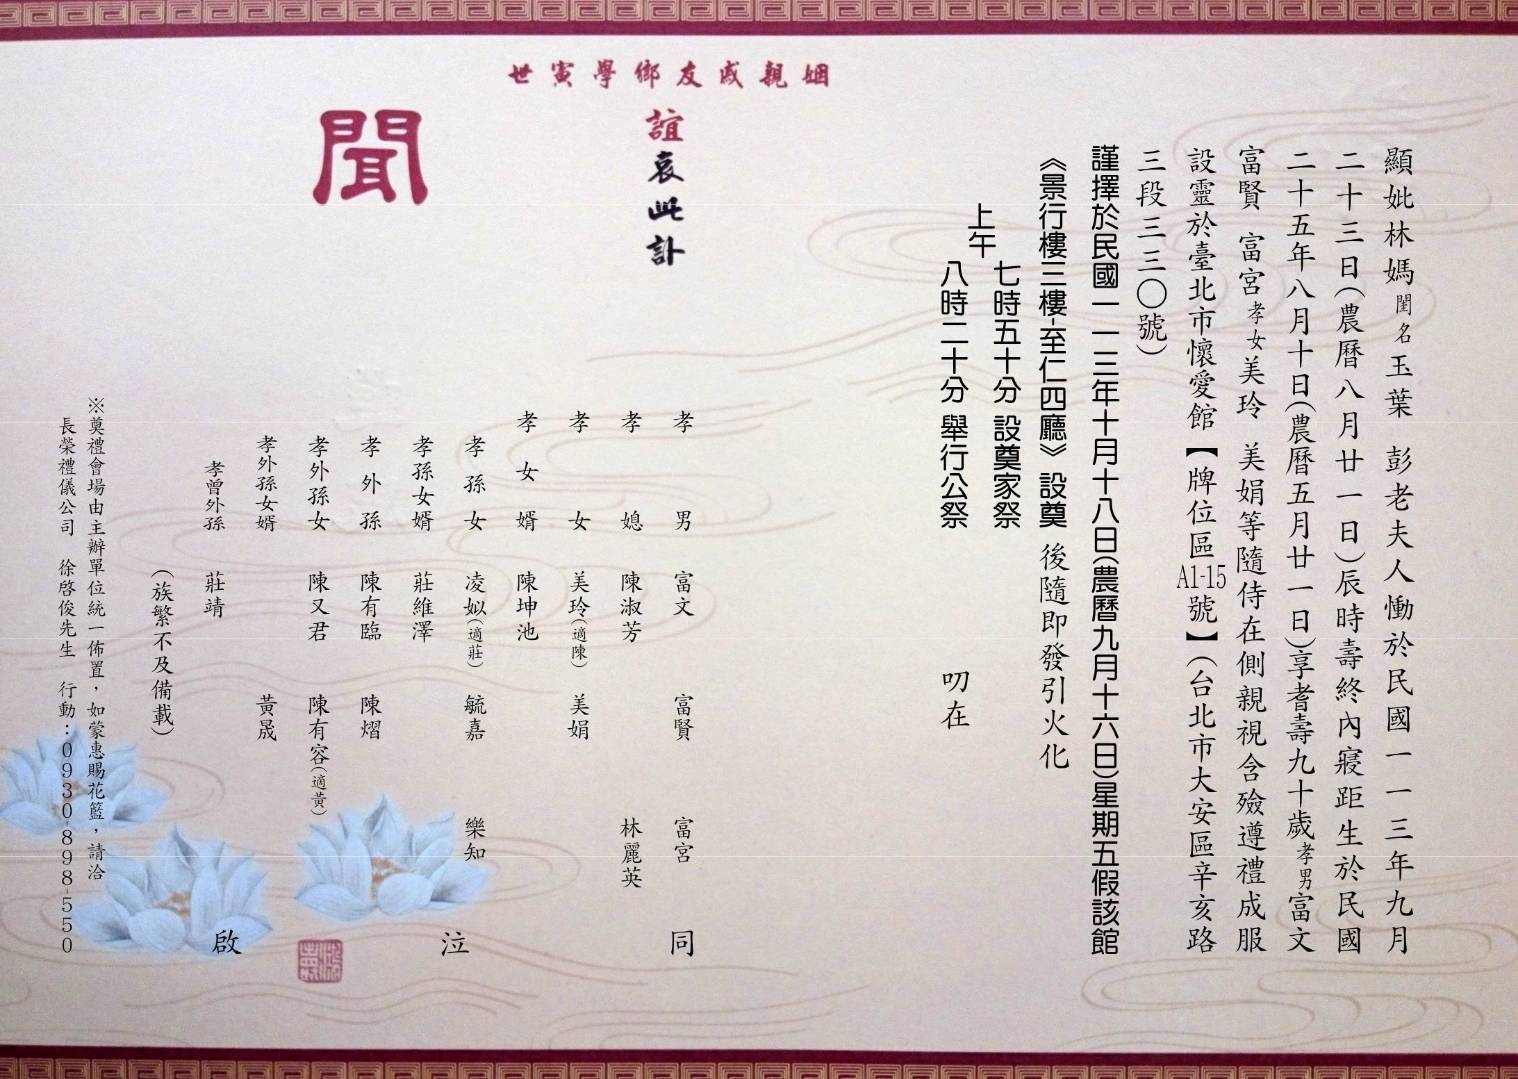 顯妣林媽閨名玉葉 彭老夫人慟於民國一一三年九月
二十三日(農曆八月廿一日)辰時壽終內寢距生於民國
二十五年八月十日(農曆五月廿一日)享耆壽九十歲孝男富文
富賢 富宮孝女美玲 美娟等隨侍在側親視含殮遵禮成服
設靈於臺北市懷愛館【牌位區A1-15號】(台北市大安區辛亥路
三段三三〇號)
謹擇於民國一一三年十月十八日(農曆九月十六日)星期五假該館
《景行樓三樓-至仁四廳》設奠 後隨即發引火化
上午
七時五十分 設奠家祭
八時二十分 舉行公祭
叨在
姻親戚友鄉學寅世
誼哀此訃
聞
孝男 富文 富賢 富宮
孝媳 陳淑芳 林麗英
孝女 美玲(適陳) 美娟
孝女婿 陳坤池
孝孫女 凌姒(適莊) 毓嘉 樂知
孝孫女婿 莊維澤
孝外孫 陳有臨 陳熠
孝外孫女 陳又君 陳有容(適黃)
孝外孫女婿 黃晟
孝曾外孫 莊靖
(族繁不及備載)
同泣啟
※奠禮會場由主辦單位統一佈置，如蒙惠賜花籃，請洽
長榮禮儀公司 徐啓俊先生 行動：0930-898-550